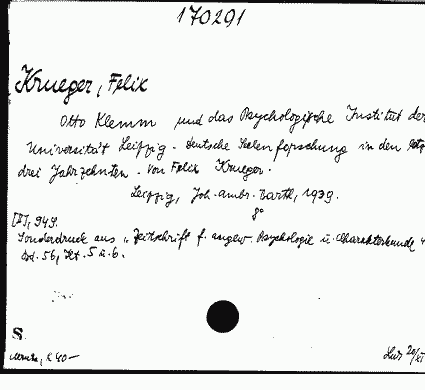 170291
Krueger, Felix
Otto Klemm und das Psychologische Institut der
Universität Leipzig. Deutsche Seelenforschung in den letz
drei Jahrzehnten. Von Felix Krueger.
Leipzig, Joh. Ambr. Barth, 1939.
8°
949.
Sonderdruck aus "Zeitschrift f. angew. Psychologie u. Charakterkunde"
Bd. 56, Ht. 5 u. 6.
S.
40-